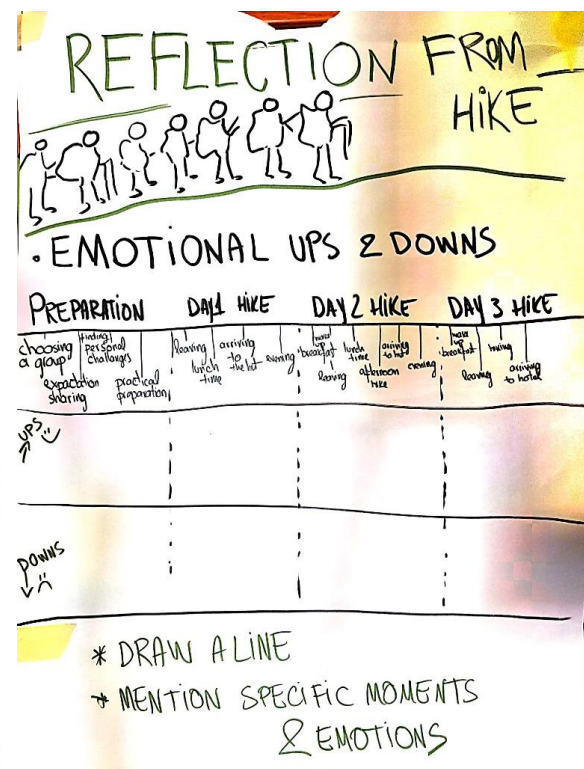 REFLECTION FROM
HIKE
• EMOTIONAL UPS & DOWNS
PREPARATION DAY 1 HIKE DAY 2 HIKE DAY 3 HIKE
choosing
a group
expectation
sharing
finding
personal
challenges
practical
preparation
leaving
lunch
time
arriving
to
the hut
evening
wake
up
breakfast
leaving
lunch
time
afternoon
hike
arriving
to hut
evening
wake
up
breakfast
leaving
arriving
to hotel
UPS
DOWNS
* DRAW A LINE
* MENTION SPECIFIC MOMENTS
& EMOTIONS